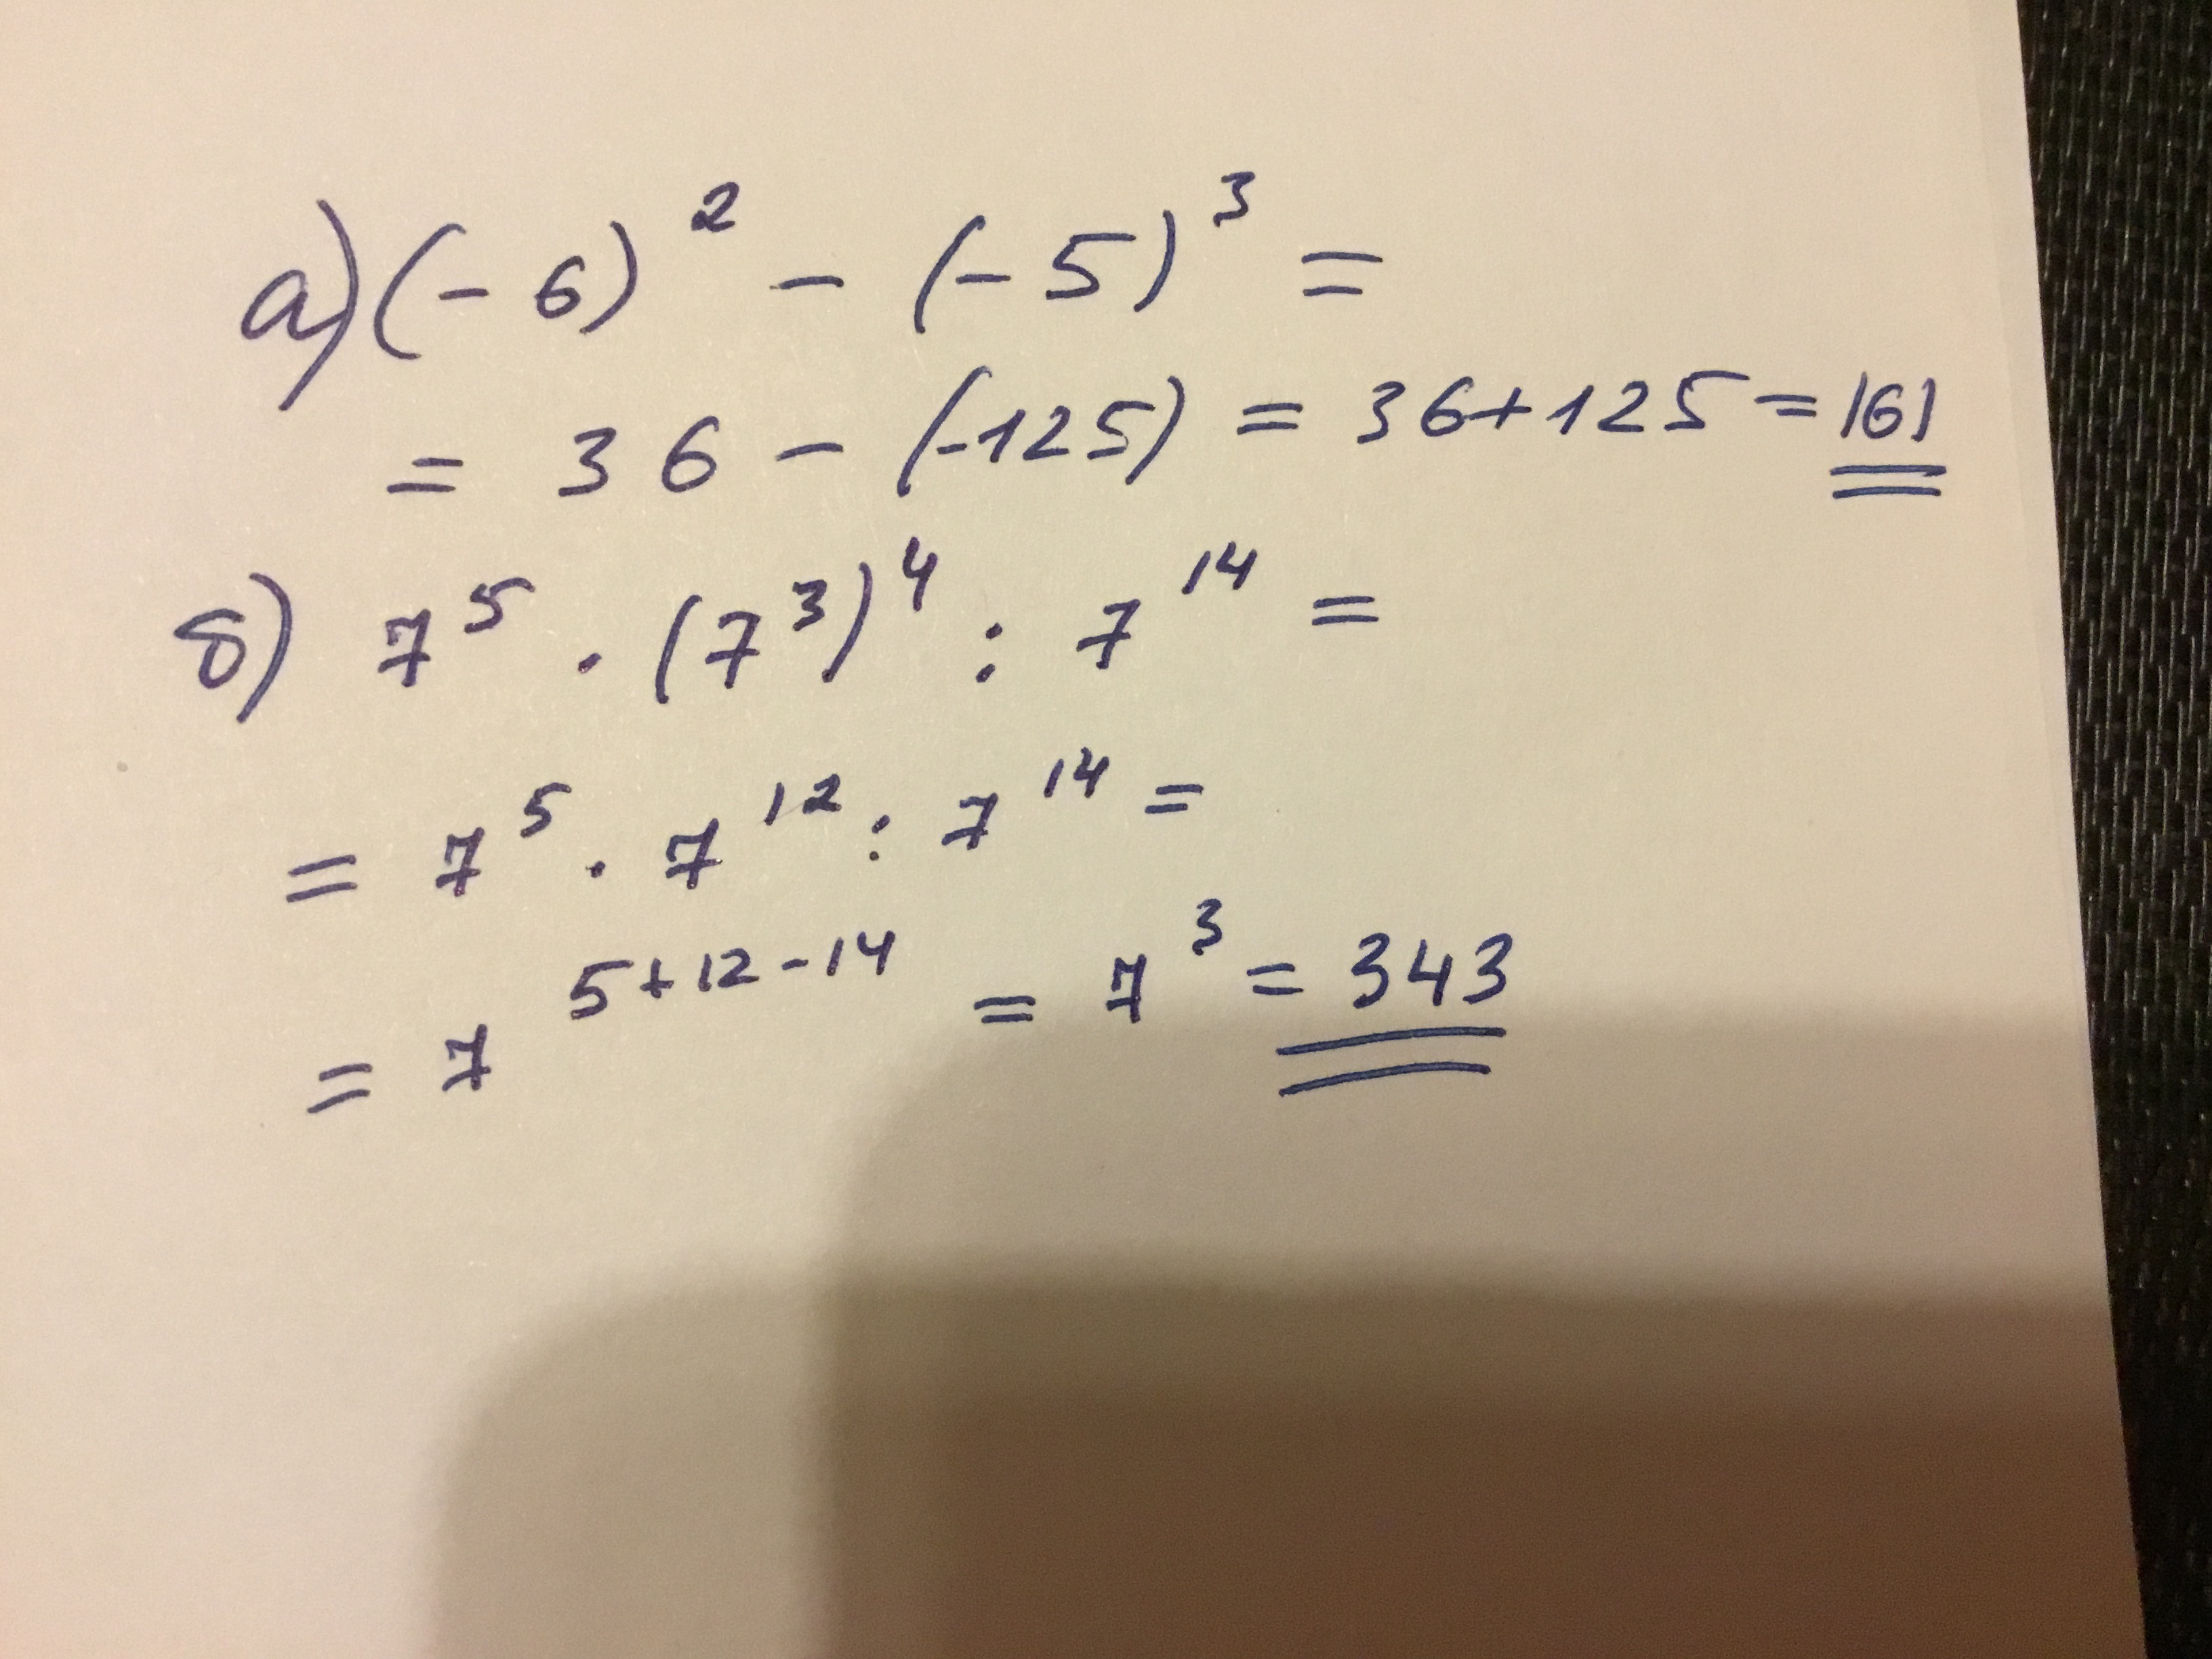 а) (-6)² - (-5)³ =
= 36 - (-125) = 36+125 = 161
б) 7⁵ · (7³)⁴ : 7¹⁴ =
= 7⁵ · 7¹² : 7¹⁴ =
= 7⁵⁺¹²⁻¹⁴ = 7³ = 343